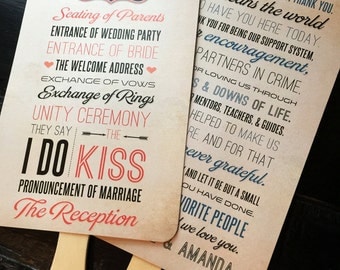 Seating of Parents
ENTRANCE OF WEDDING PARTY
ENTRANCE OF BRIDE
THE WELCOME ADDRESS
EXCHANGE OF VOWS
Exchange of Rings
UNITY CEREMONY
THEY SAY THE
I DO KISS
PRONOUNCEMENT OF MARRIAGE
The Reception
THANK YOU.
means the world
O HAVE YOU HERE TODAY
K YOU FOR BEING OUR SUPPORT SYSTEM,
encouragement,
PARTNERS IN CRIME.
OR LOVING US THROUGH
& DOWNS OF LIFE.
MENTORS, TEACHERS, & GUIDES.
HELPED TO MAKE US
RE AND FOR THAT
ever grateful.
AND LET IT BE BUT A SMALL
YOU HAVE DONE.
VORITE PEOPLE
we love you.
& AMANDA